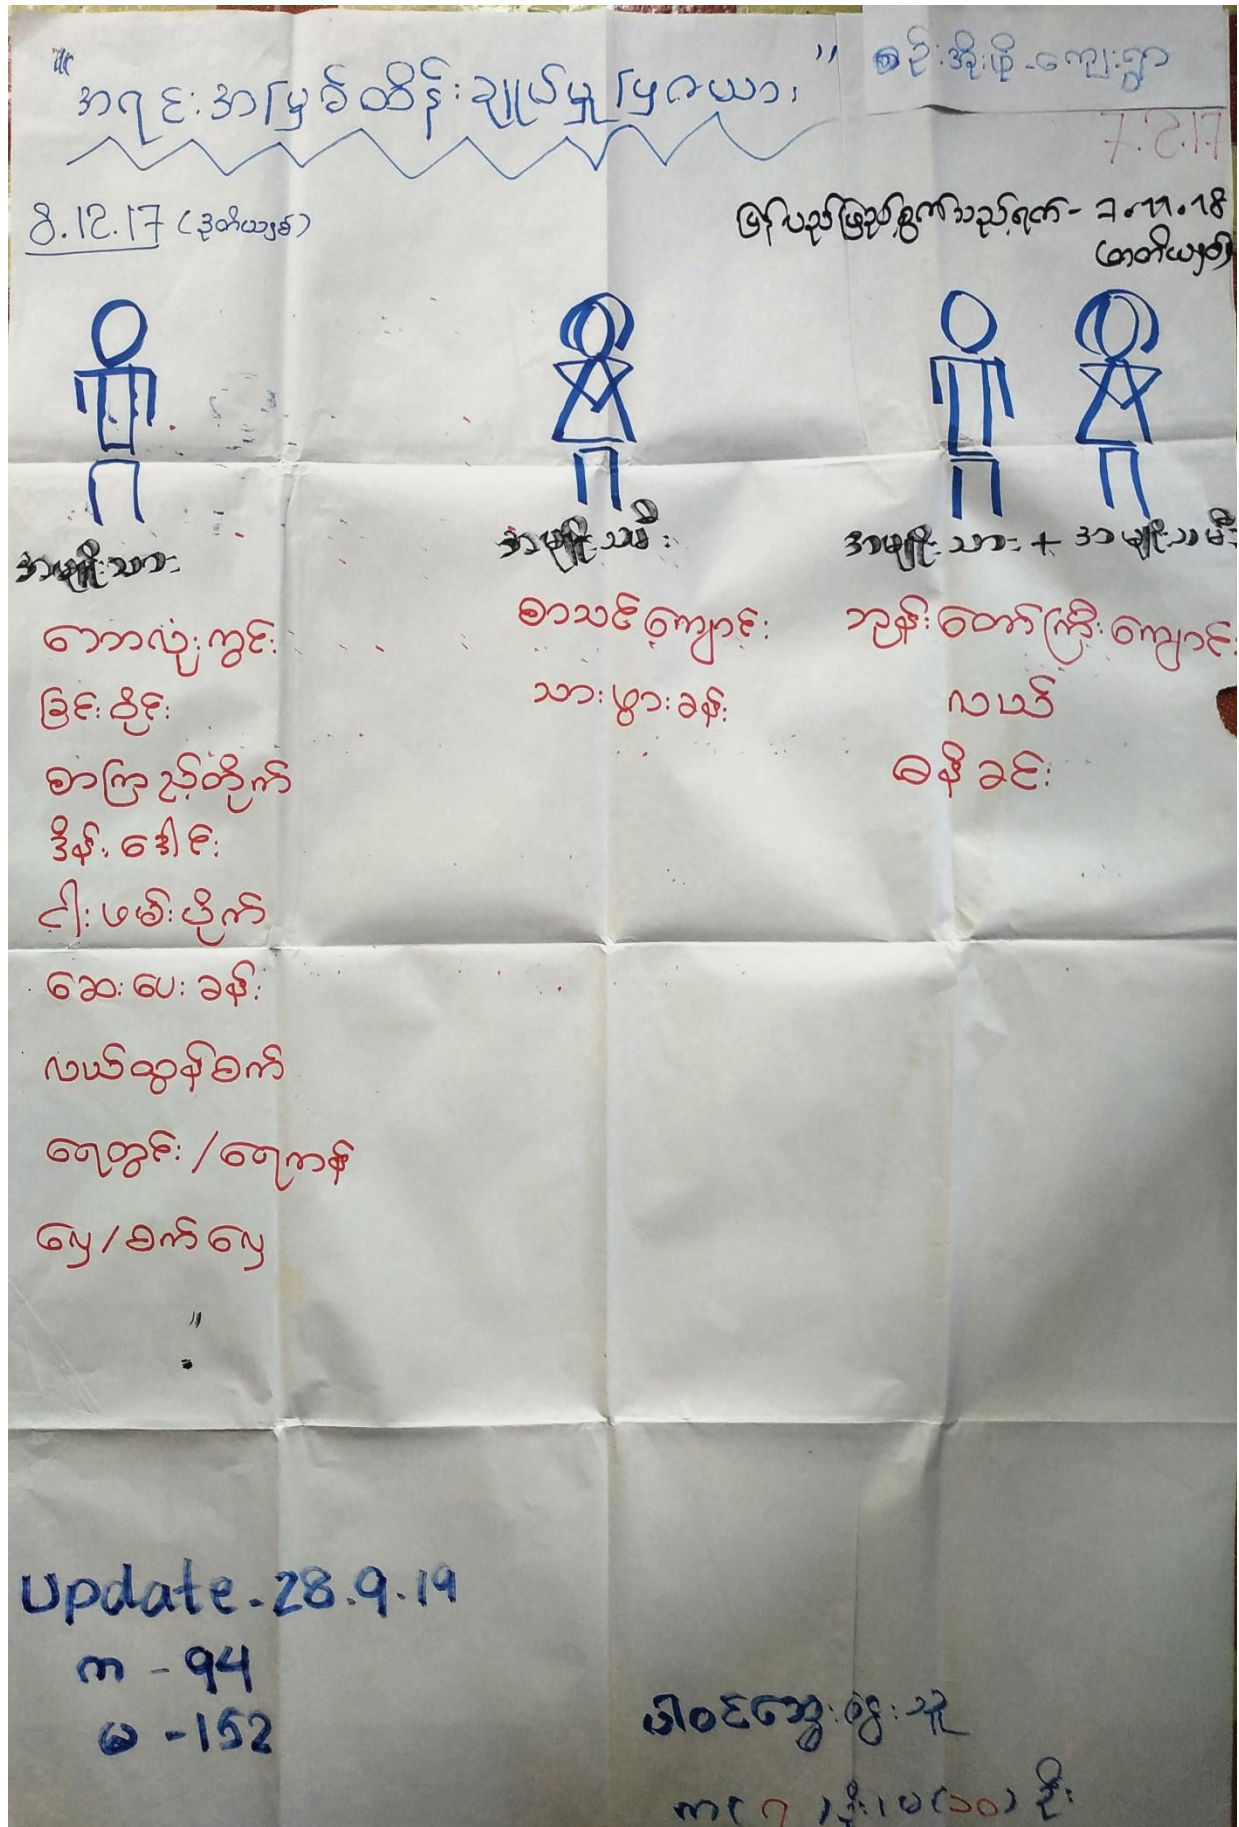 "အရင်းအမြစ်ထိန်းချုပ်မှုပြဇယား"
စဉ့်အိုးဖို-ကျေးရွာ
7.2.17
8.12.17 (ဒုတိယနှစ်)
ပြန်လည်ဖြည့်စွက်သည့်ရက်- 7.11.18
(တတိယနှစ်)
အမျိုးသား
အမျိုးသမီး
အမျိုးသား + အမျိုးသမီး
ဘောလုံးကွင်း
ခြင်းဝိုင်း
စာကြည့်တိုက်
ဒိန်းဒေါင်း
ငါးဖမ်းပိုက်
ဆေးပေးခန်း
လယ်ထွန်စက်
ရေတွင်း/ရေကန်
လှေ/စက်လှေ
"
စာသင်ကျောင်း
သားဖွားခန်း
ဘုန်းတော်ကြီးကျောင်း
လယ်
ဓနိခင်း
Update-28.9.19
က - 94
မ - 152
ပါဝင်ဆွေးနွေးသူ
က(၇)ဦး၊ မ(၁၀)ဦး